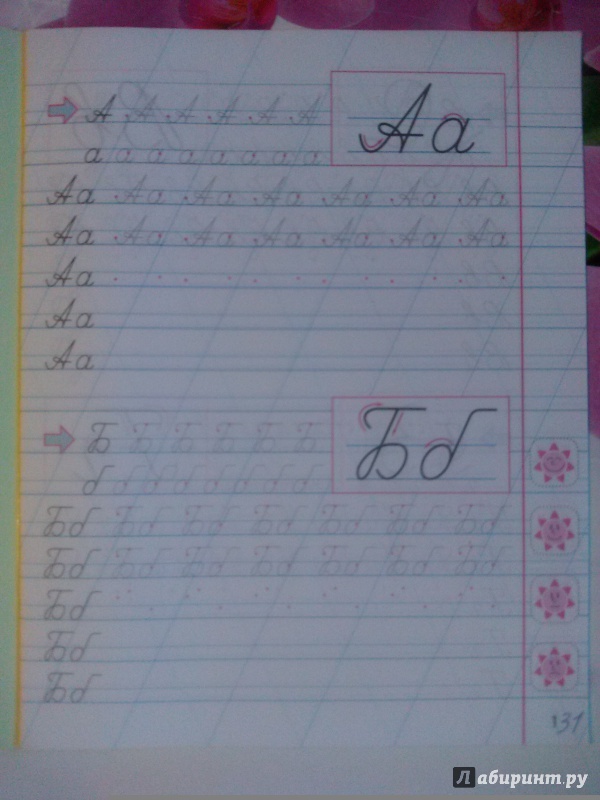 А А А А А А
Аа
а а а а а а а а
Аа Аа Аа Аа Аа Аа Аа
Аа Аа Аа Аа Аа Аа Аа
Аа
Аа
Аа
Б Б Б Б Б Б
Бб
б б б б б б б б
Бб Бб Бб Бб Бб Бб Бб
Бб Бб Бб Бб Бб Бб Бб
Бб
Бб
Бб
131
Лабиринт.ру